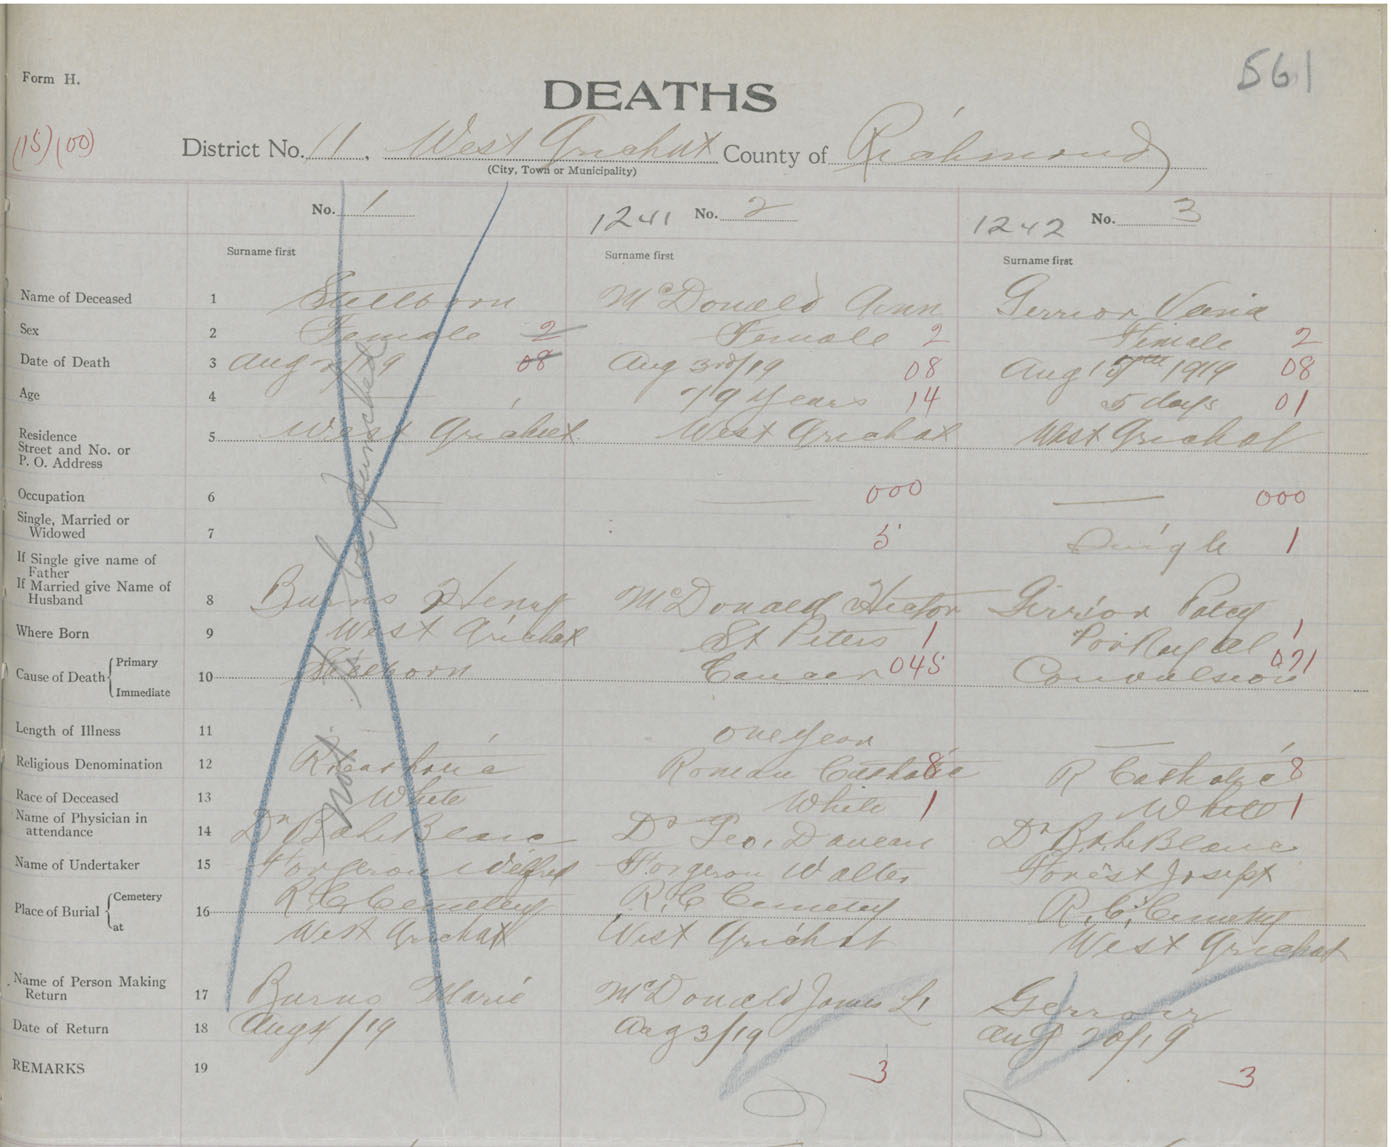 561
Form H.
DEATHS
(15) (00)
District No. 11, West Arichat County of Richmond
(City, Town or Municipality)
No. 1 1241 No. 2 1242 No. 3
Surname first Surname first Surname first
Name of Deceased 1 Stillborn McDonald Ann Gerrior
Sex 2 Female 2 Female 2 Female 2
Date of Death 3 Aug /19 08 Aug 3rd/19 08 Aug 15th 1919 08
Age 4 79 years 14 5 days 01
Residence
Street and No. or
P. O. Address
5 West Arichat West Arichat West Arichat
Occupation 6 — 000 — 000
Single, Married or
Widowed
7 5 Single 1
If Single give name of
Father
If Married give Name of
Husband
8 Burns Henry McDonald Hector Gerrior
Where Born 9 West Arichat St Peters 1 1
Cause of Death { Primary
Immediate
10 Stillborn Cancer 045 Convulsion 071
Length of Illness 11 one year —
Religious Denomination 12 R Catholic Roman Catholic 8 R Catholic 8
Race of Deceased 13 White White 1 White 1
Name of Physician in
attendance
14 Dr B. A. LeBlanc Dr Geo. Dr B. A. LeBlanc
Name of Undertaker 15 Forgeron Wilfred Forgeron Walter Forest Joseph
Place of Burial { Cemetery
at
16 R C Cemetery R. C Cemetery R. C. Cemetery
West Arichat West Arichat West Arichat
Name of Person Making
Return
17 Burns Marie McDonald James L. Gerrior
Date of Return 18 Aug 4/19 Aug 3/19 Aug 20/19
REMARKS 19 3 3
Not to be punched